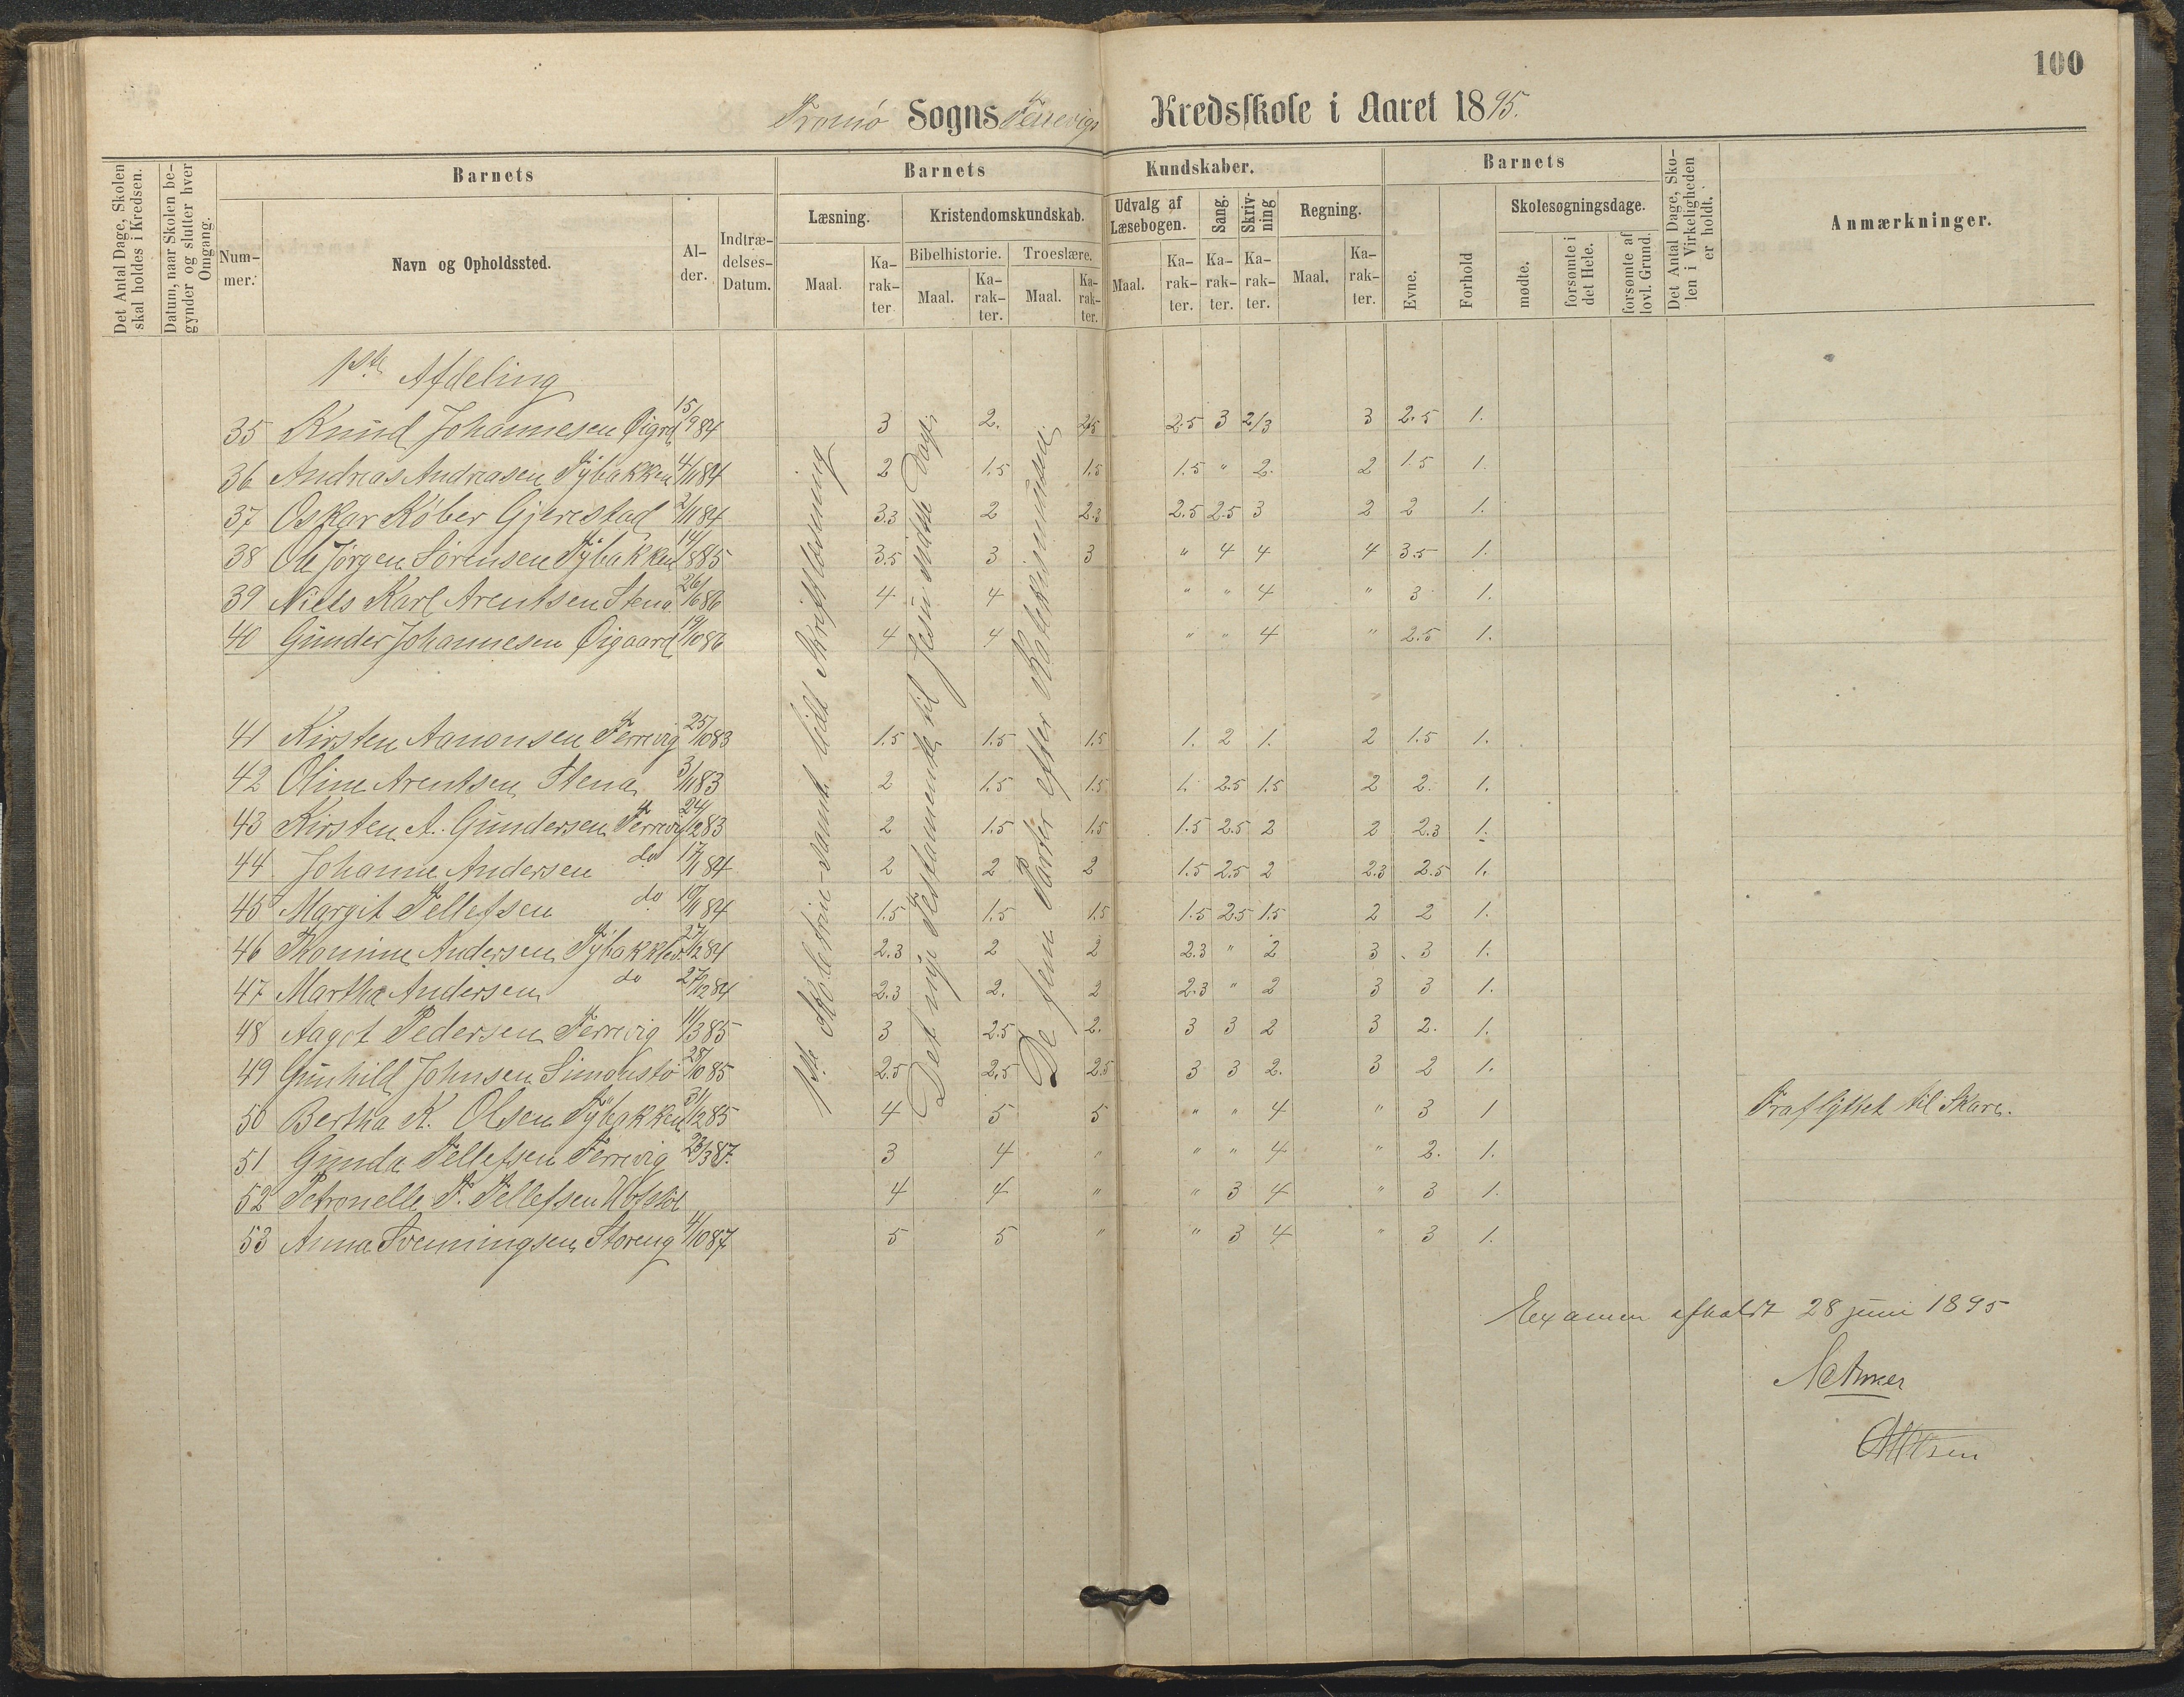 100
Tromø Sogns Færevigs Kredsskole i Aaret 1895.
Det Antal Dage, Skolen skal holdes i Kredsen.
Datum, naar Skolen begynder og slutter hver Omgang.
Barnets
Nummer.
Navn og Opholdssted.
Alder.
Indtrædelses-Datum.
Barnets Kundskaber.
Læsning.
Maal.
Karakter.
Kristendomskundskab.
Bibelhistorie.
Maal.
Karakter.
Troeslære.
Maal.
Karakter.
Udvalg af Læsebogen.
Maal.
Karakter.
Sang.
Karakter.
Skrivning
Karakter.
Regning.
Maal.
Karakter.
Barnets
Evne.
Forhold
Skolesøgningsdage.
mødte.
forsømte i det Hele.
forsømte af lovl. Grund.
Det Antal Dage, Skolen i Virkeligheden er holdt.
Anmærkninger.
1ste Afdeling
35 Knud Johannesen Øigrd 15/9 84 3 2. 2.5 2.5 3 2/3 3 2.5 1.
36 Andreas Andreasen Tybakken 4/11 84 2 1.5 1.5 1.5 " 2. 2 1.5 1.
37 Oskar Køber Gjerestad 2/11 84 3.3 2 2.3 2.5 2.5 3 2 2 1.
38 Ole Jørgen Sørensen Tybakken 14/8 85 3.5 3 3 " 4 4 4 3.5 1.
39 Niels Karl Arentsen Stena 26/6 86 4 4 " " 4 " 3 1.
40 Gunder Johannesen Øigaard 19/10 86 4 4 " " 4 " 2.5 1.
41 Kirsten Aanonsen Færevig 25/10 83 1.5 1.5 1.5 1. 2 1. 2 1.5 1.
42 Oline Arentsen Stena 3/11 83 2 1.5 1.5 1. 2.5 1.5 2 2. 1.
43 Kirsten A. Gundersen Færevig 24/12 83 2 1.5 1.5 1.5 2.5 2 2 2.3 1.
44 Johanne Andersen do 17/1 84 2 2 2 1.5 2.5 2 2.3 2.5 1.
45 Margit Tellefsen do 10/11 84 1.5 1.5 1.5 1.5 2.5 1.5 2 2 1.
46 Thomine Andersen Tybakken 27/12 84 2.3 2 2 2.3 " 2 3 3 1.
47 Martha Andersen do 27/12 84 2.3 2. 2 2.3 " 2 3 3 1.
48 Aagot Pedersen Færevig 11/3 85 3 2.5 2. 3 3 2 3 2. 1.
49 Gunhild Johnsen Simonstø 28/10 85 2.5 2.5 2.5 3 3 2. 3 2 1.
50 Bertha K. Olsen Tybakken 31/12 85 4 5 5 " " 4 " 3 1 Fraflyttet til Skare.
51 Gunda Tellefsen Færevig 23/3 87. 3 4 " " " 4 " 2. 1.
52 Petronelle T. Tellefsen 4 4 " " 3 4 " 3 1.
53 Anna Svenningsen Storeng 4/10 87 5 5 " " 3 4 " 3 1.
1ste Skoletrin samt lidt Skriftlæsning
Det nye Testamente til Jesu sidste Dage
De fem Parter efter Katekismus
Examen afholdt 28 juni 1895